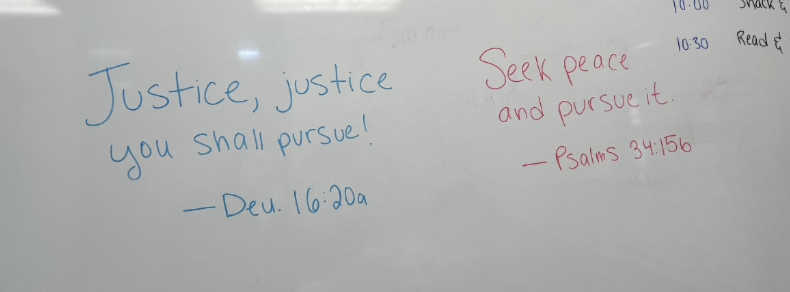 Justice, justice
you shall pursue!
—Deu. 16:20a
Seek peace
and pursue it.
—Psalms 34:15b
10:00 Snack &
10:30 Read &